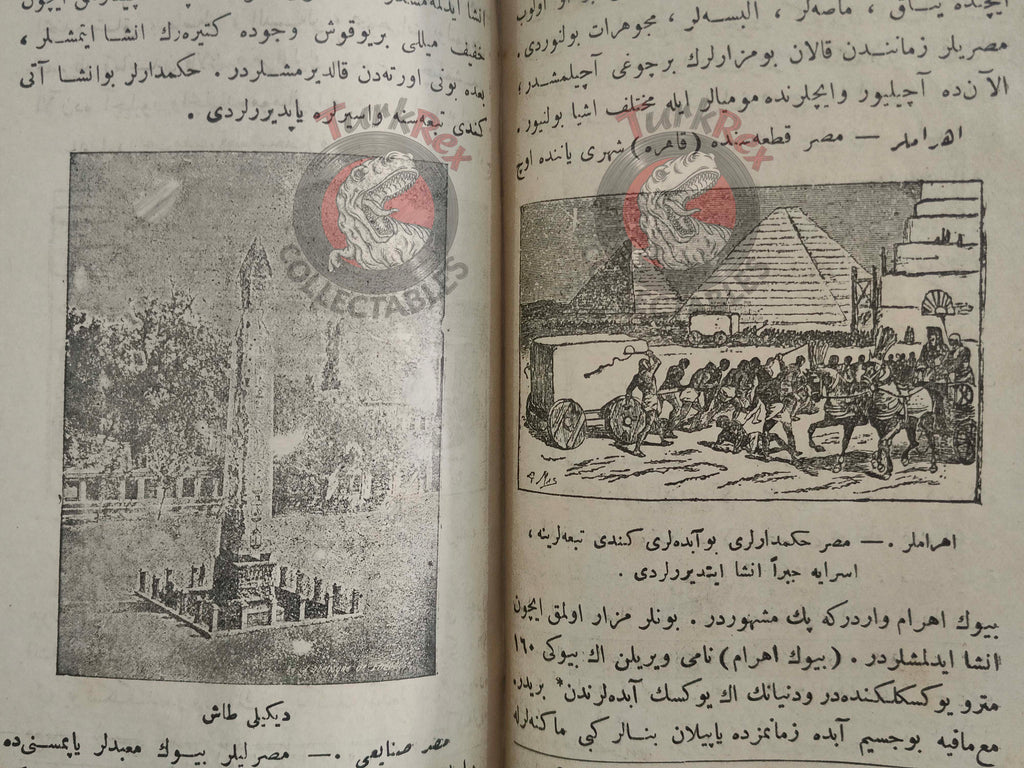 ایچنده یتاق ، ماصه‌لر ، البسه‌لر ، مجوهرات بولنوردی .
مصریلر زماننندن قالان بومزارلرك برچوغی آچیلمشدر ،
الآن‌ده آچیلیور وایچلرنده مومیالر ایله مختلف اشیا بولنیور .
اهراملر — مصر قطعه‌سنده ( قاهره ) شهری یاننده اوچ
اهراملر . — مصر حکمدارلری بوآبده‌لری کندی تبعه‌لرینه ،
اسرایه جبراً انشا ایتدیررلردی .
بیوك اهرام واردرکه پك مشهوردر . بونلر مزار اولمق ایچون
انشا ایدلمشلردر . ( بیوك اهرام ) نامی ویریلن اك بیوکی ١٦٠
مترو یوکسکلکنده‌در ودنیانك اك یوکسك آبده‌لرندن بریدر.
مع‌مافیه بوجسیم آبده زمانمزده یاپیلان بنالر کبی ماکنه‌لرله
انشا ایدلمه‌مشدر
خفیف میللی بریوقوش وجوده کتیره‌رك انشا ایتمشلر ،
بعده بونی اورته‌دن قالدیرمشلردر . حکمدارلر بوانشا آتی
کندی تبعه‌سنه واسیرلره یاپدیررلردی .
دیکیلی طاش
مصر صنایعی . — مصرلیلر بیوك معبدلر یاپمسنی‌ده
TurkRex
COLLECTABLES
TurkRex
COLLECTABLES